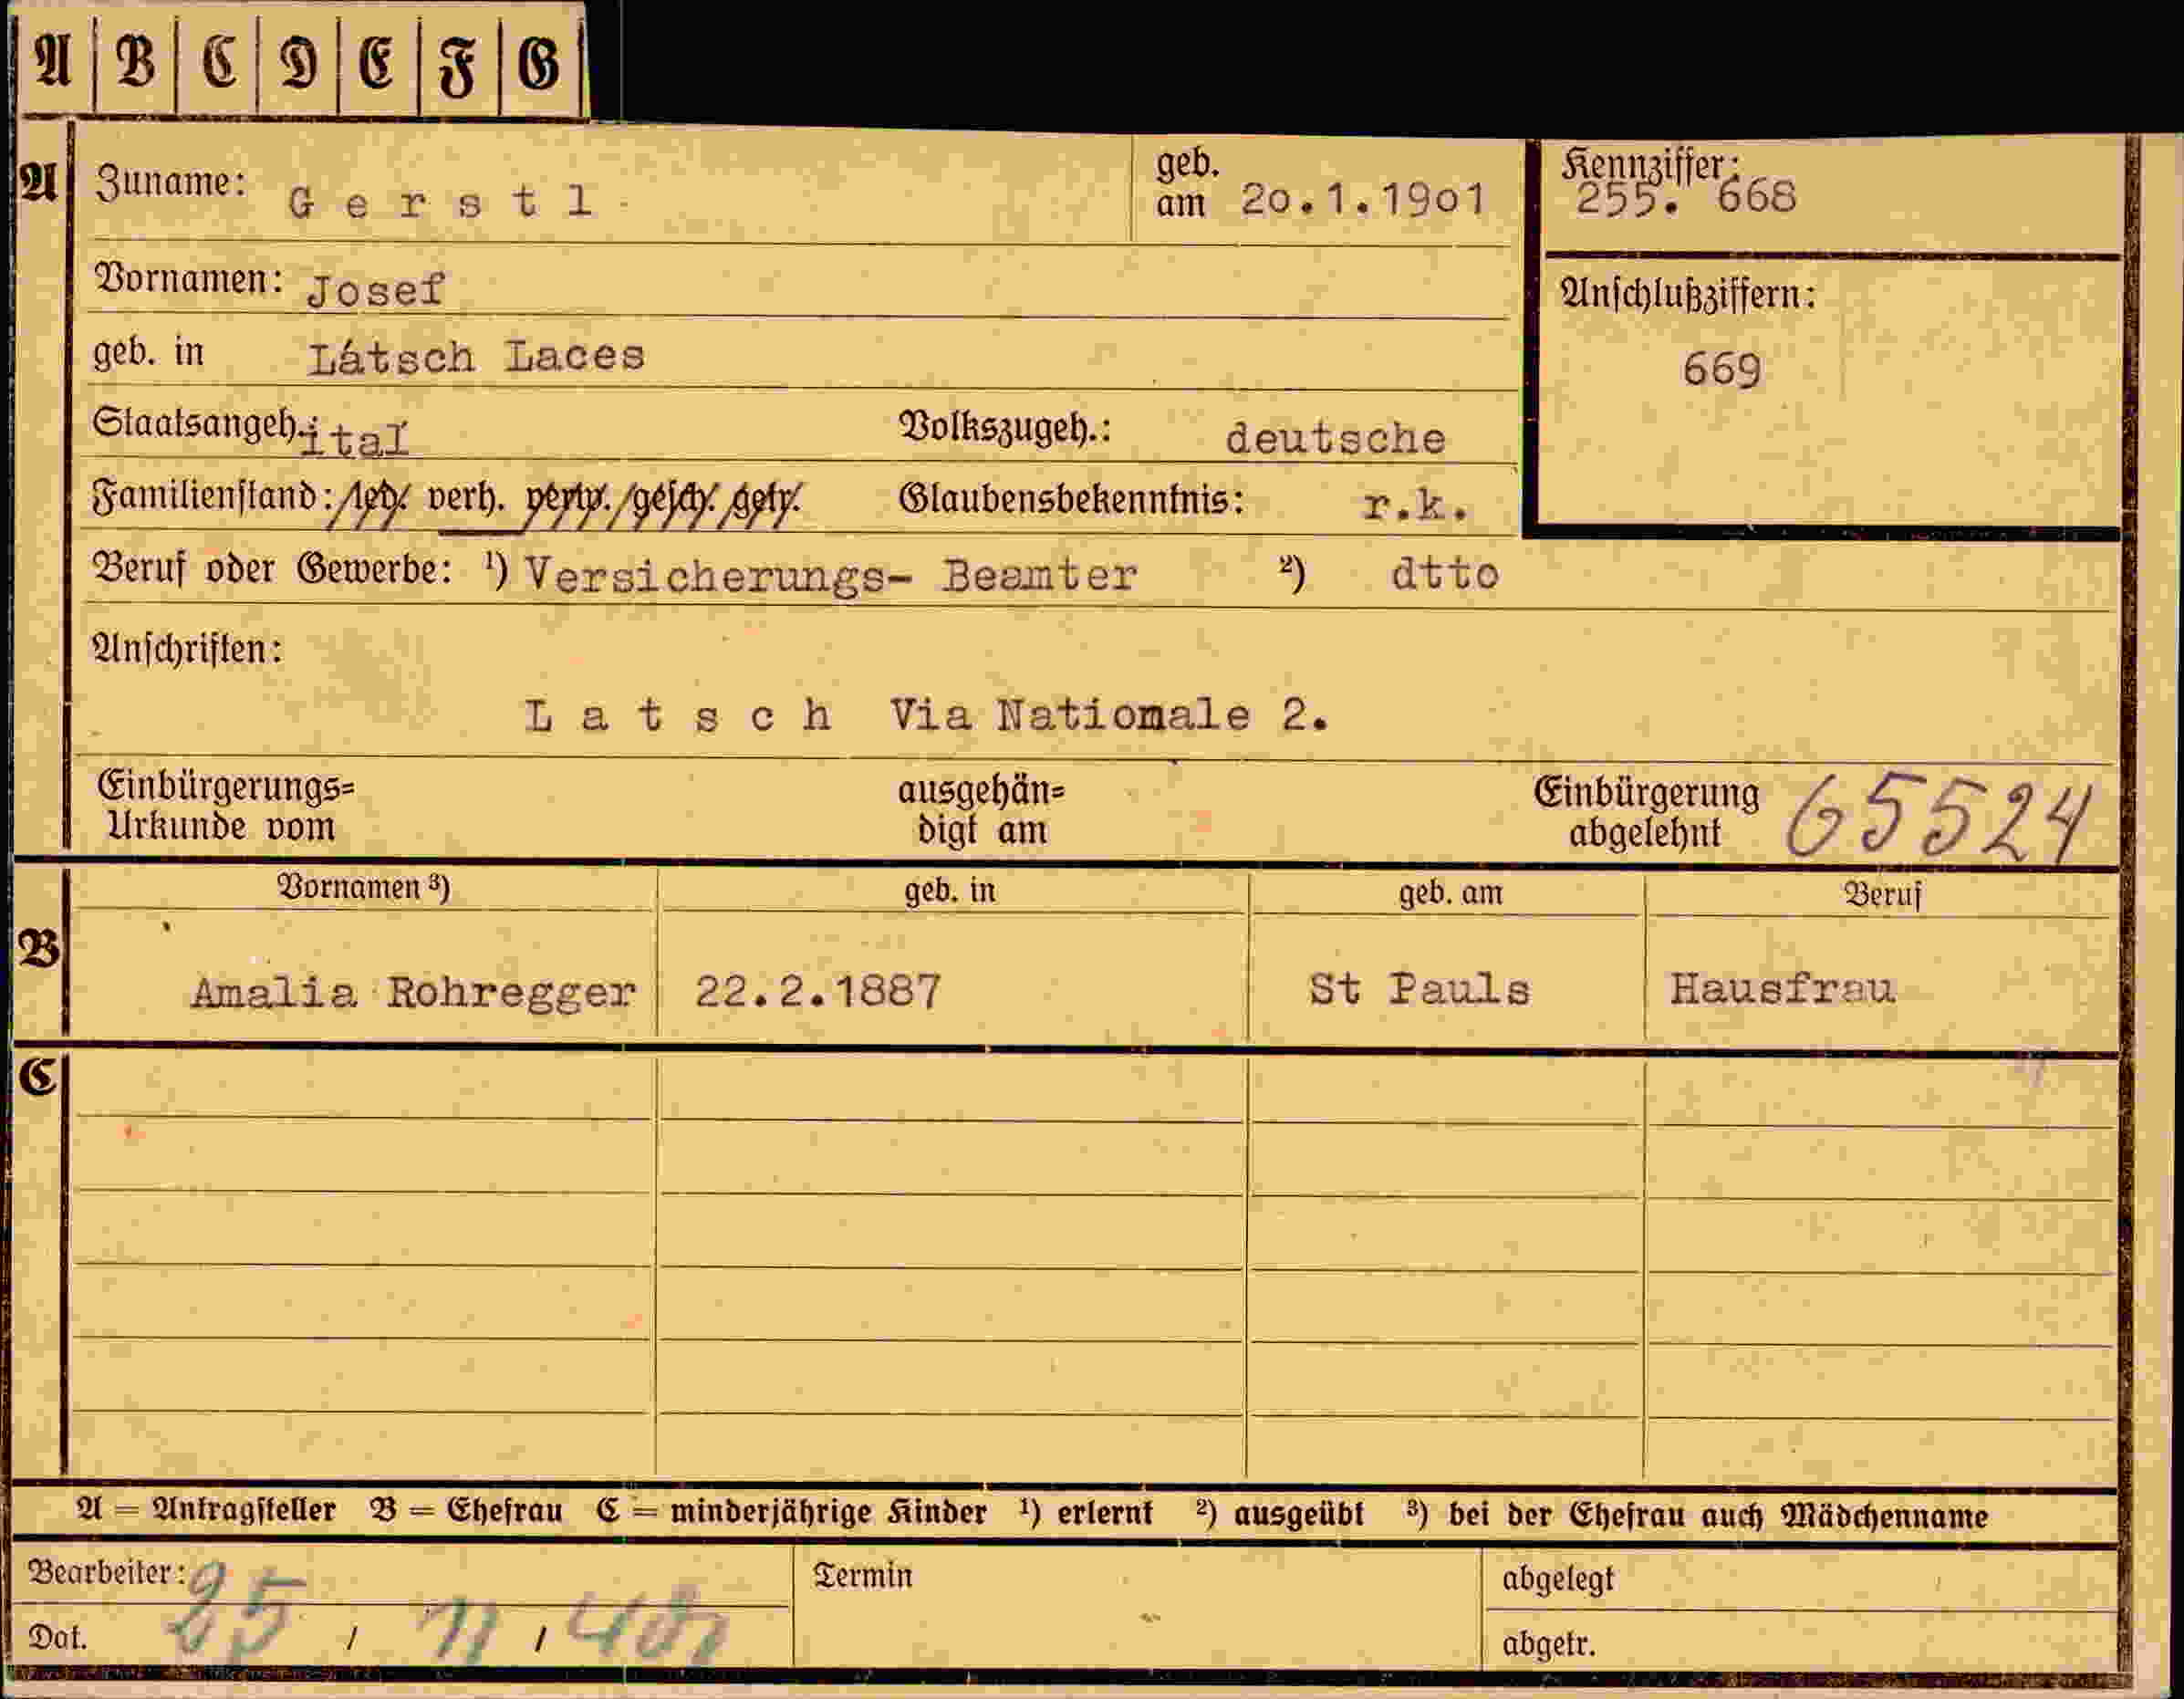 A B C D E F G
A
Zuname: G e r s t l
geb. am 2o.1.19o1
Kennziffer: 255. 668
Vornamen: Josef
Anschlußziffern:
669
geb. in Látsch Laces
Staatsangeh. ital
Volkszugeh.: deutsche
Familienstand: led. verh. verw. gesch. getr.
Glaubensbekenntnis: r.k.
Beruf oder Gewerbe: ¹) Versicherungs- Beamter ²) dtto
Anschriften:
L a t s c h Via Nationale 2.
Einbürgerungs=
Urkunde vom
ausgehän=
digt am
Einbürgerung
abgelehnt
65524
B
Vornamen ³) geb. in geb. am Beruf
Amalia Rohregger 22.2.1887 St Pauls Hausfrau
C
A = Antragsteller B = Ehefrau C = minderjährige Kinder ¹) erlernt ²) ausgeübt ³) bei der Ehefrau auch Mädchenname
Bearbeiter:
Termin
abgelegt
Dat. 25 / 11 /
abgetr.